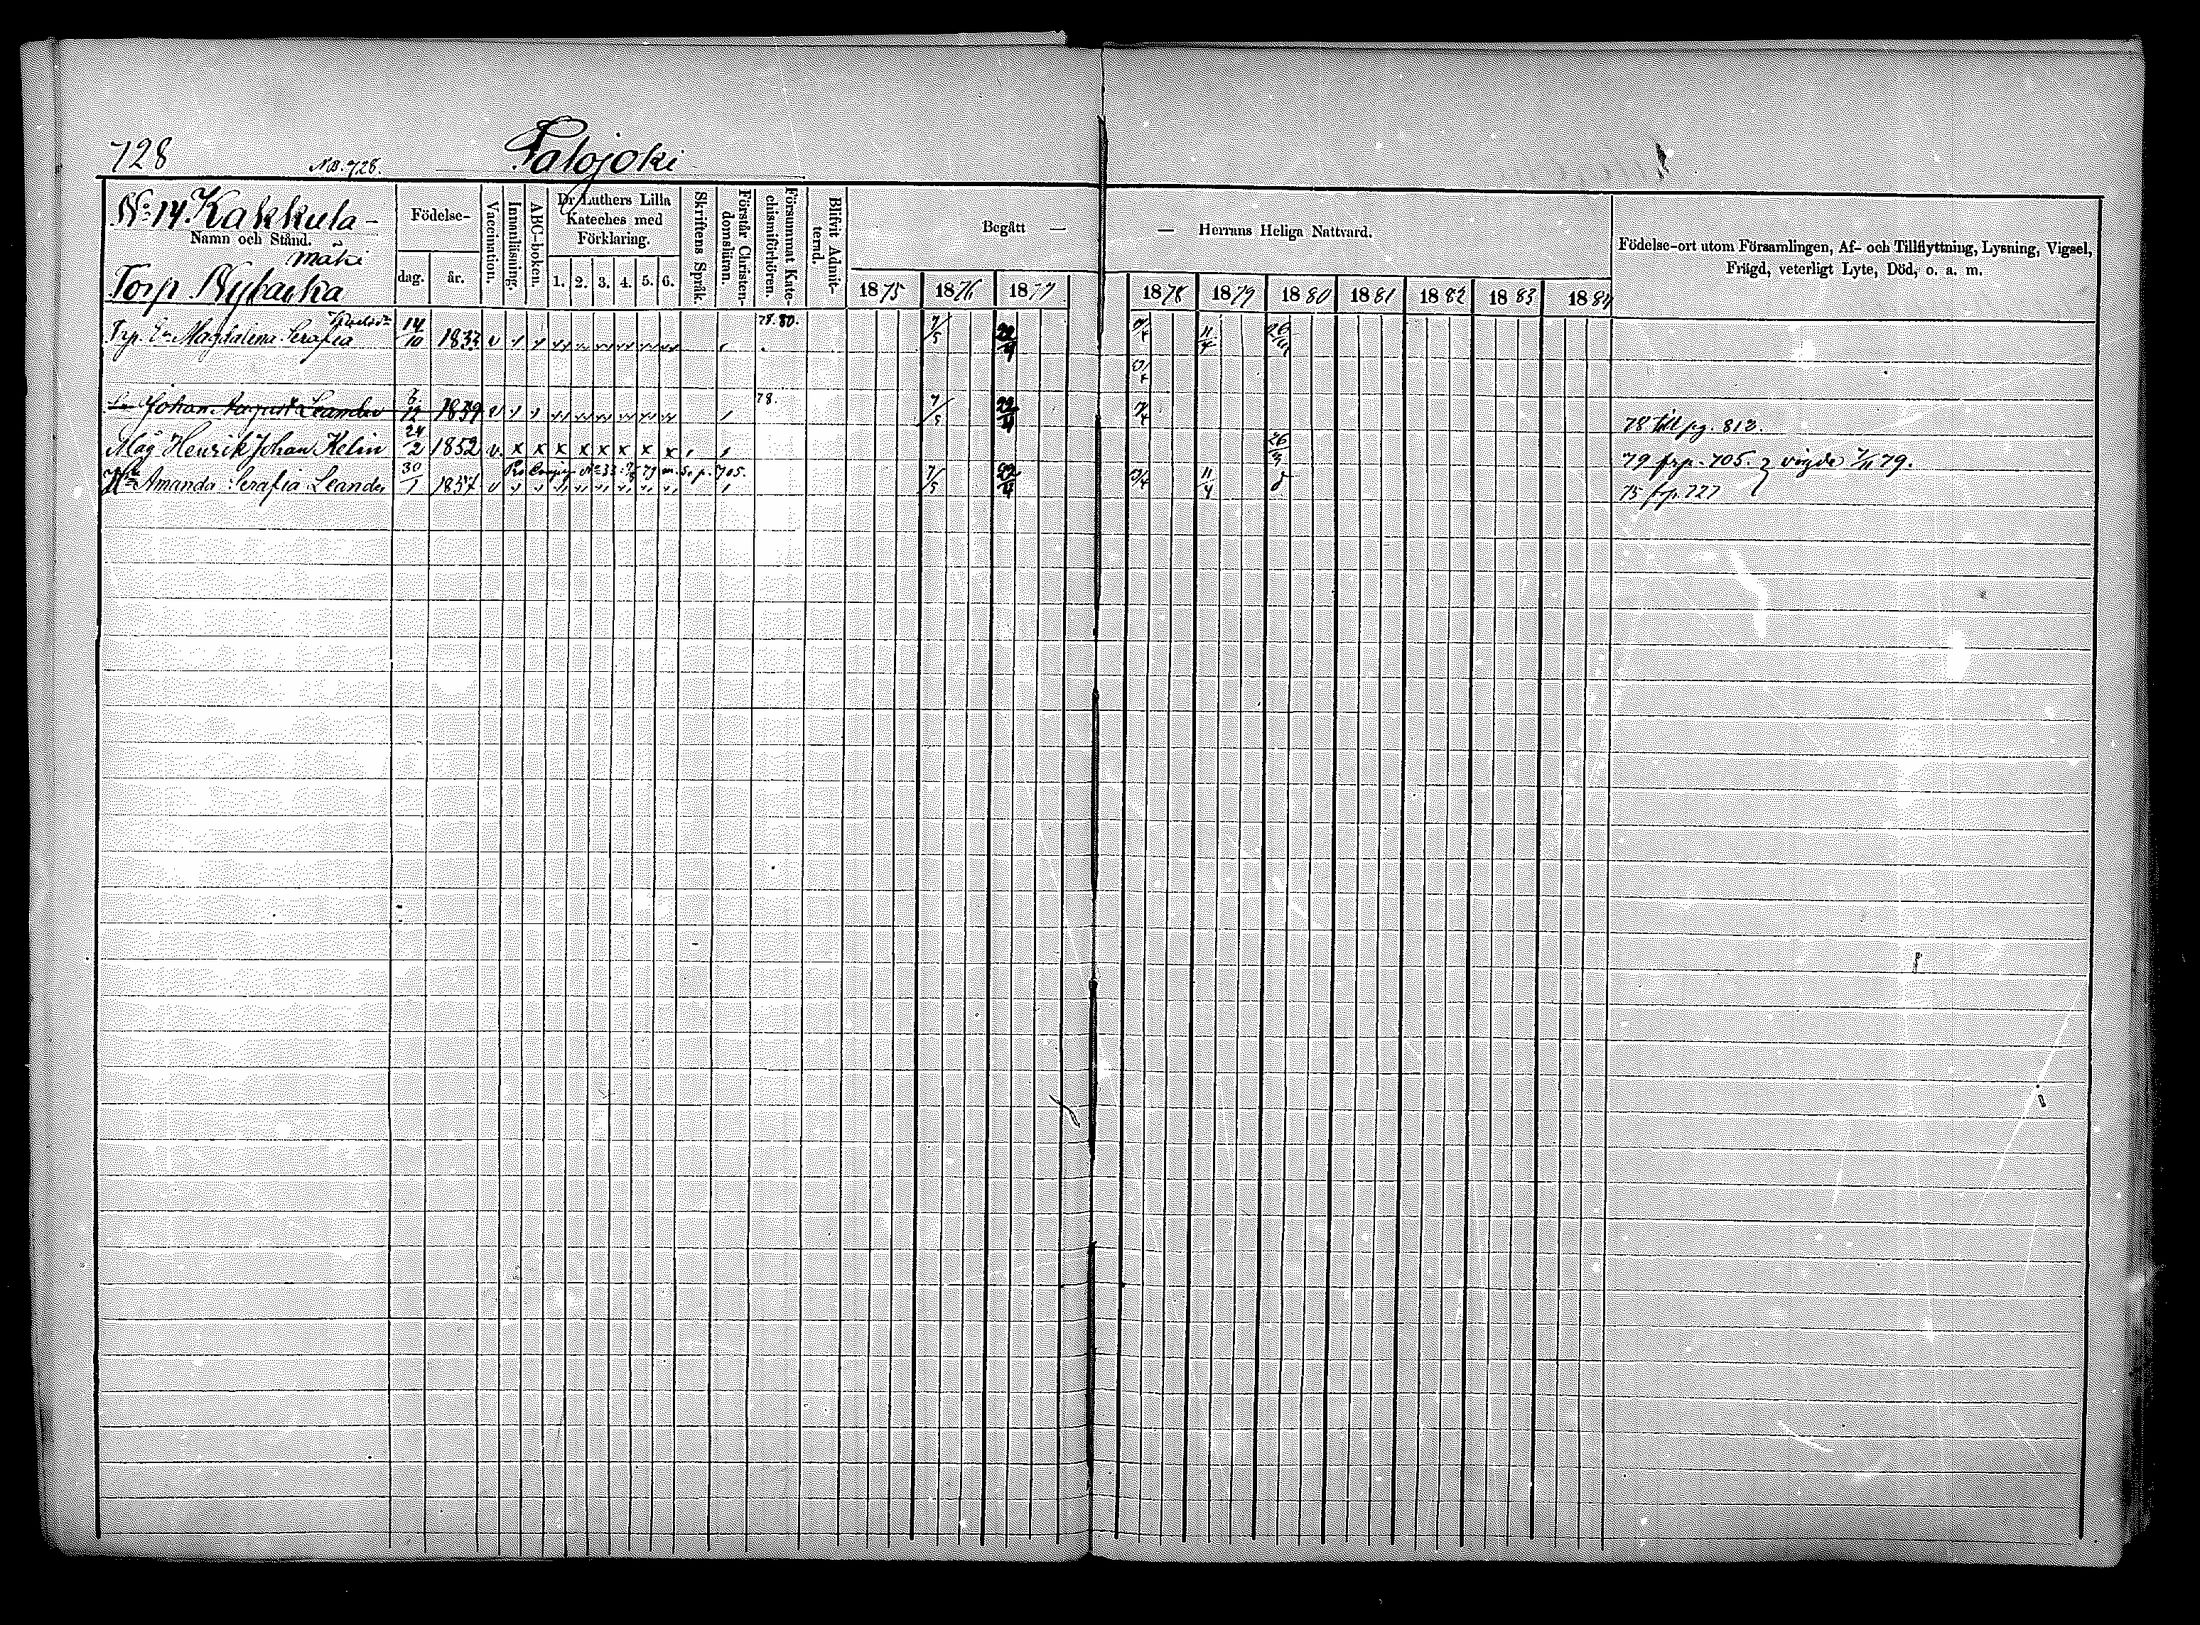 728
No. 728.
Palojoki
No 14 Kakkula-
mäki
Namn och Stånd.
Torp Nybacka
Födelse-
dag. år.
Vaccination.
Innanläsning.
ABC-boken.
Dr Luthers Lilla
Kateches med
Förklaring.
1. 2. 3. 4. 5. 6.
Skriftens Språk.
Förstår Christen-
domsläran.
Försummat Kate-
chismiförhören.
Blifvit Admit-
terad.
Begått — — Herrans Heliga Nattvard.
1875 1876 1877 1878 1879 1880 1881 1882 1883 1884
Födelse-ort utom Församlingen, Af- och Tillflyttning, Lysning, Vigsel,
Frägd, veterligt Lyte, Död, o. a. m.
Trp. Magdalena Serafia 14/10 1833 v 78. 80. 7/5 22/4 7/4 11/4
Johan August Leander 1839 v 78. 7/5 22/4 7/4 78 till pg. 813.
Måg Henrik Johan Kelin 24/2 1852 v. x x x x x x x x 26/3 79 frp. 705. vigde 79.
Amanda Serafia Leander 30/1 1857 v 7/5 22/4 11/4 75 frp. 727